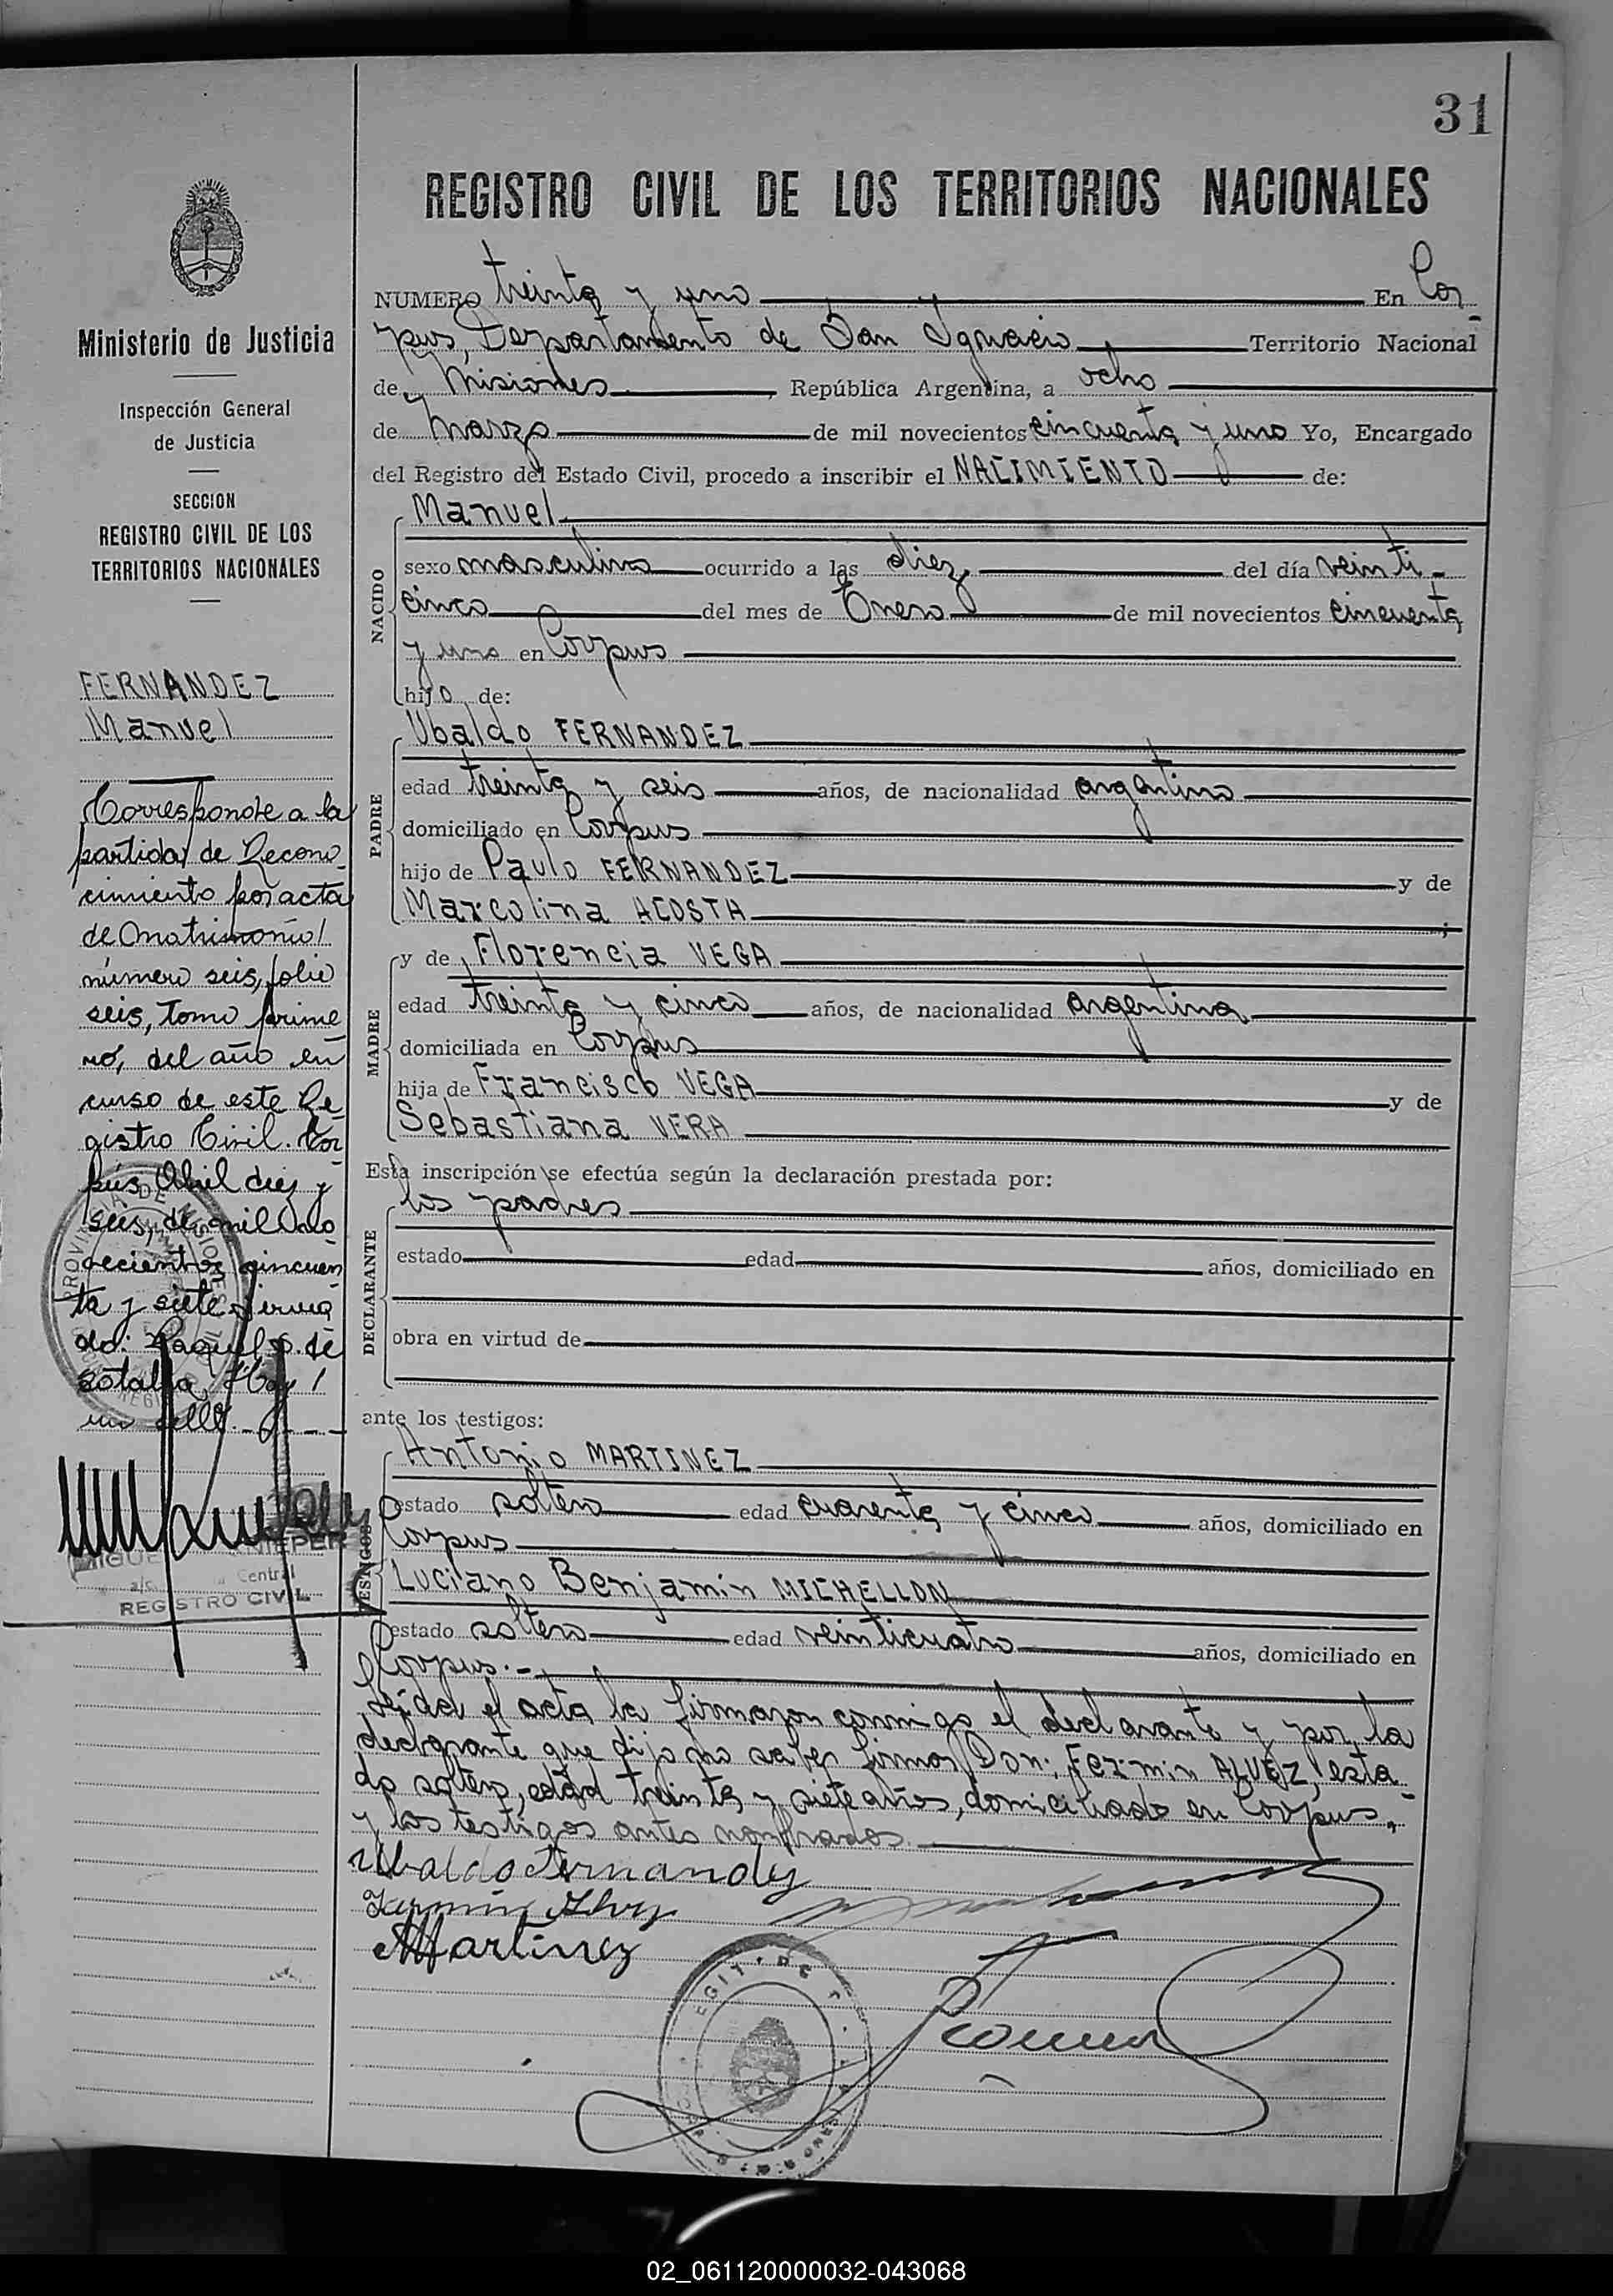 31
REGISTRO CIVIL DE LOS TERRITORIOS NACIONALES
Ministerio de Justicia
Inspección General
de Justicia
SECCION
REGISTRO CIVIL DE LOS
TERRITORIOS NACIONALES
FERNANDEZ
Manuel
Corresponde a la
partida de Recono
cimiento por acta
de matrimonio
número seis, folio
seis, Tomo prime
ro, del año en
curso de este Re
gistro Civil. Cor
pus Abril diez y
seis, de mil no
vecientos cincuen
ta y siete firma
do: Raquel S. de
Hay
un sello.
Central
REGISTRO CIVIL
NUMERO treinta y uno En Cor
pus, Departamento de San Ignacio Territorio Nacional
de Misiones, República Argentina, a ocho
de Marzo de mil novecientos cincuenta y uno Yo, Encargado
del Registro del Estado Civil, procedo a inscribir el NACIMIENTO de:
NACIDO
Manuel
sexo masculino ocurrido a las diez del día veinti-
cinco del mes de Enero de mil novecientos cincuenta
y uno en Corpus
hijo de:
PADRE
Ubaldo FERNANDEZ
edad treinta y seis años, de nacionalidad argentino
domiciliado en Corpus
hijo de Paulo FERNANDEZ y de
Marcolina ACOSTA;
MADRE
y de Florencia VEGA
edad treinta y cinco años, de nacionalidad argentina
domiciliada en Corpus
hija de Francisco VEGA y de
Sebastiana VERA
Esta inscripción se efectúa según la declaración prestada por:
DECLARANTE
los padres
estado edad años, domiciliado en
obra en virtud de
ante los testigos:
TESTIGOS
Antonio MARTINEZ
estado soltero edad cuarenta y cinco años, domiciliado en
Corpus
Luciano Benjamin MICHELLON
estado soltero edad veinticuatro años, domiciliado en
Corpus.-
Leida el acta la firmaron conmigo el declarante y por la
declarante que dijo no saber firmar Don: Fermin ALVEZ, esta
do soltero, edad treinta y siete años, domiciliado en Corpus,
y los testigos antes nombrados.
Ubaldo Fernandez
Fermin Alvez
AMartinez
02_061120000032-043068